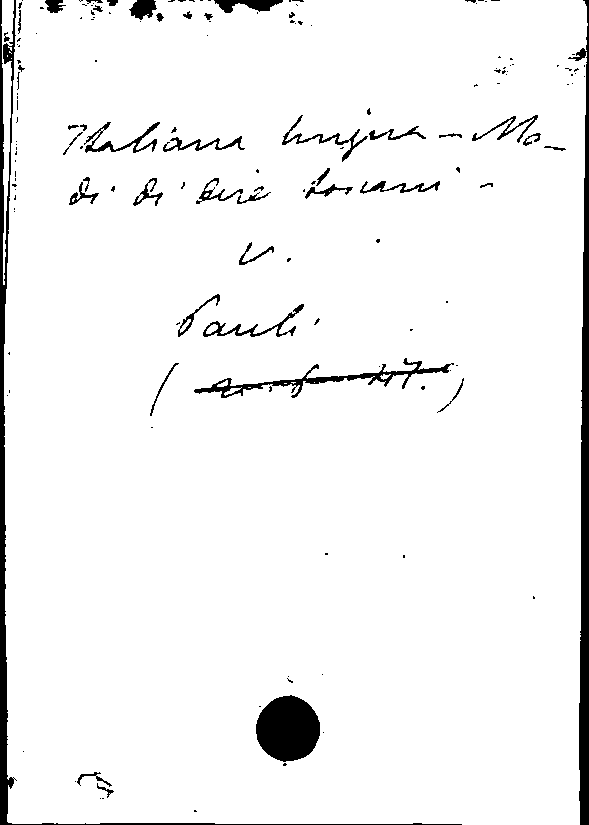 Italiana lingua - Mo-
di di dire toscani -
V.
Pauli